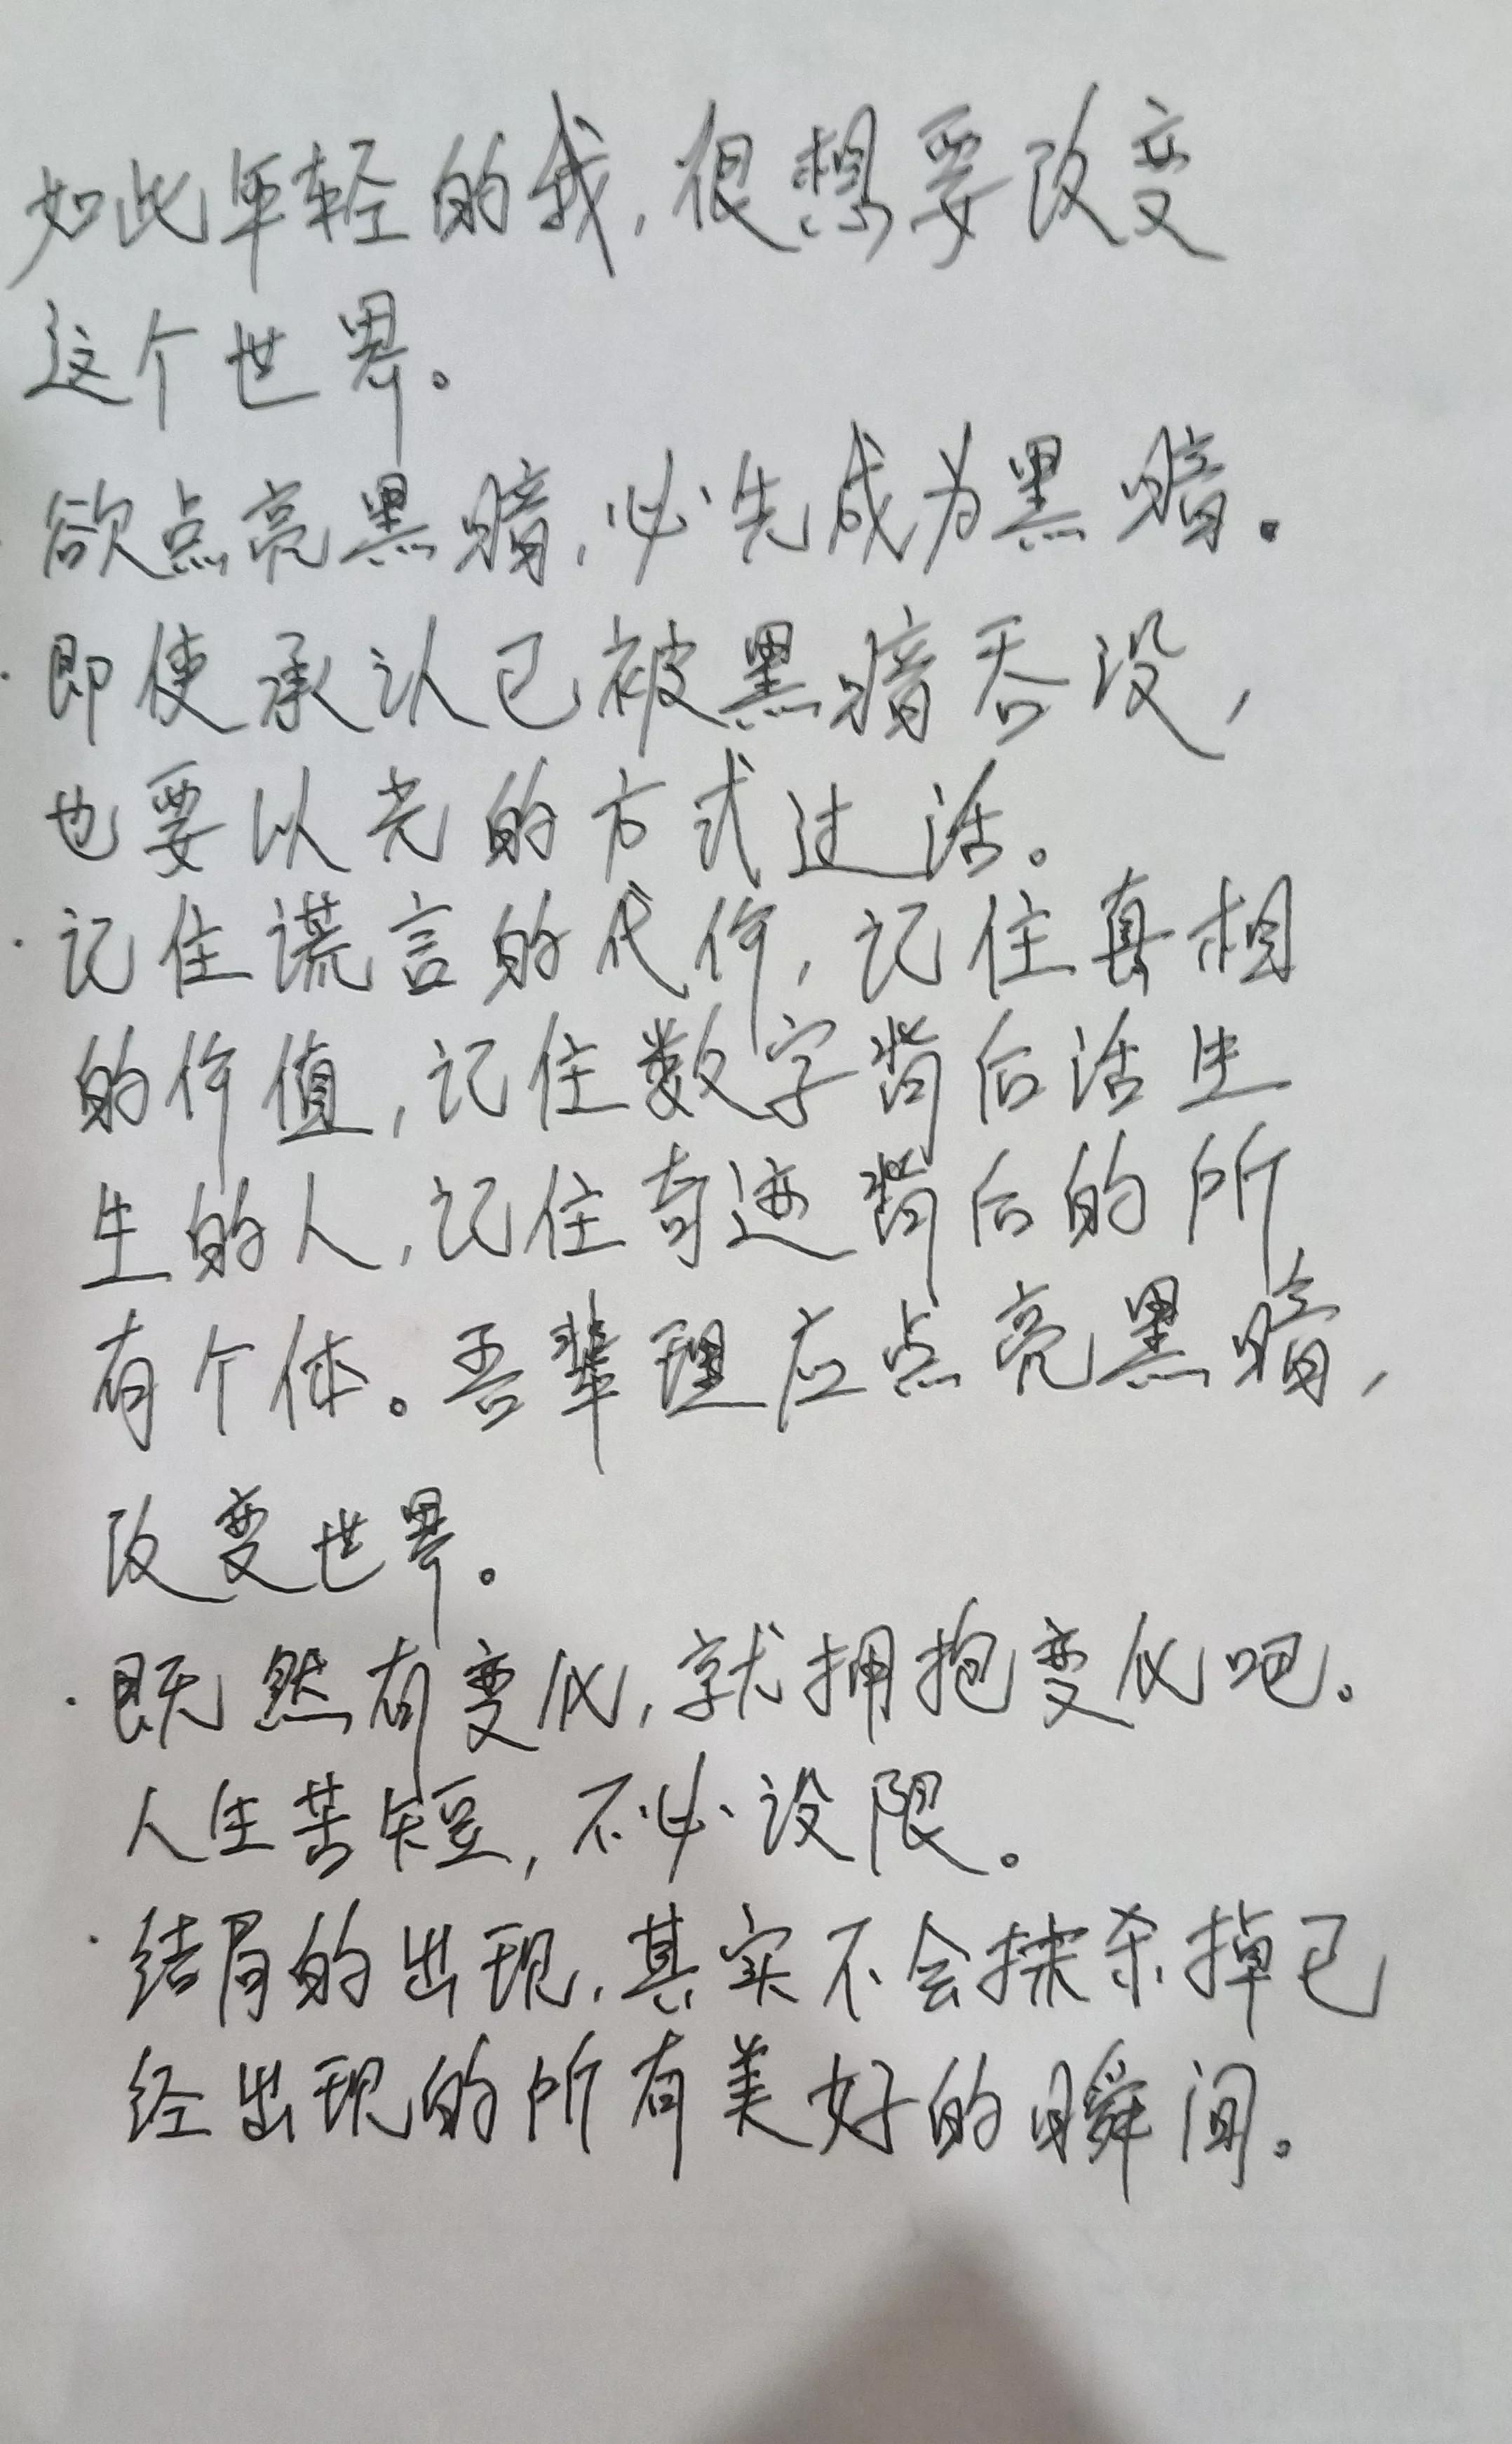 如此年轻的我，很想要改变
这个世界。
欲点亮黑暗，必先成为黑暗。
·即使承认已被黑暗吞没，
也要以光的方式过活。
·记住谎言的代价，记住真相
的价值，记住数字背后活生
生的人，记住奇迹背后的所
有个体。吾辈理应点亮黑暗，
改变世界。
·既然有变化，就拥抱变化吧。
人生苦短，不必设限。
·结局的出现，其实不会抹杀掉已
经出现的所有美好的瞬间。